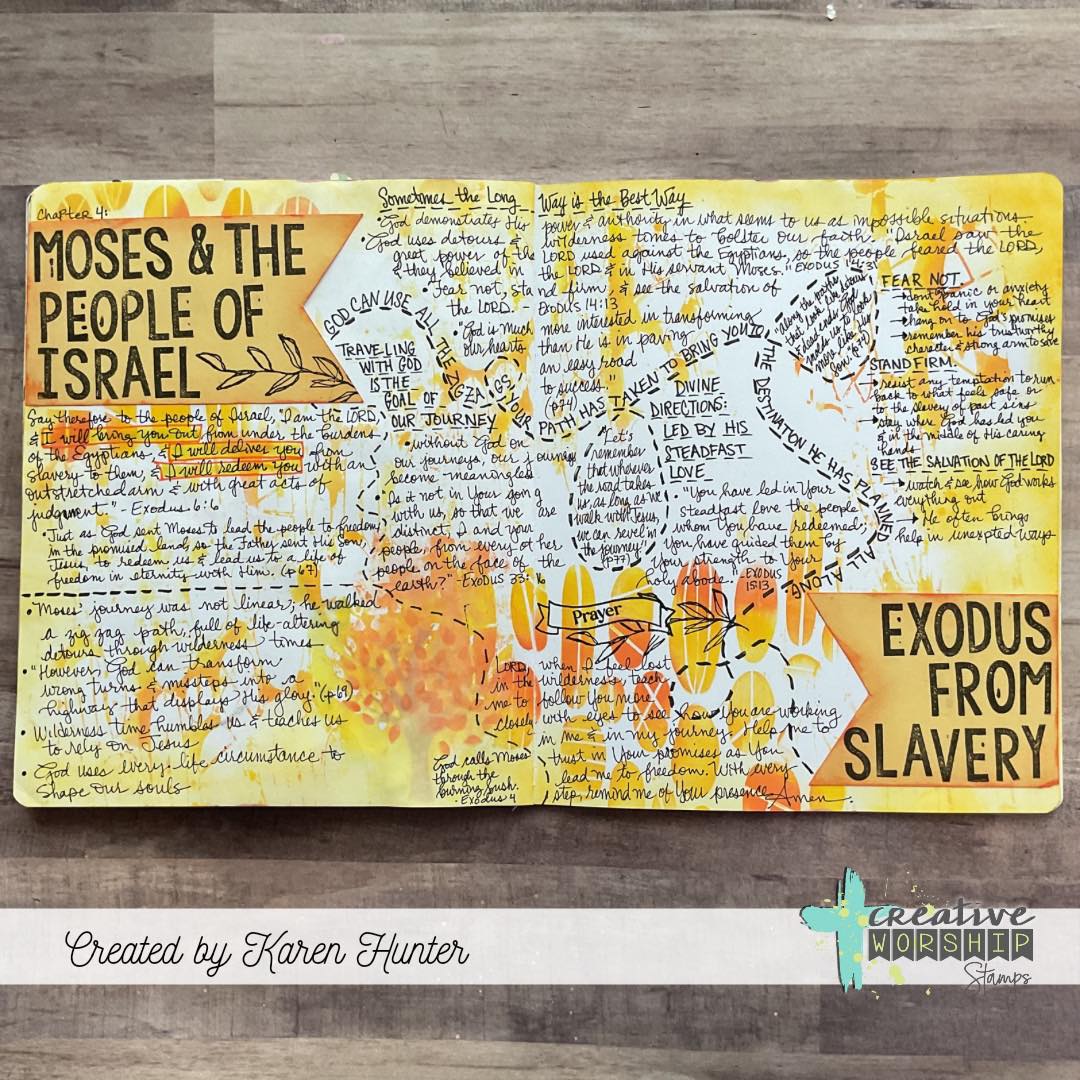 Chapter 4:
MOSES & THE
PEOPLE OF
ISRAEL
Say therefore to the people of Israel, "I am the LORD,
& I will bring you out from under the burdens
of the Egyptians, & I will deliver you from
slavery to them, & I will redeem you with an
outstretched arm & with great acts of
judgment." - Exodus 6:6
• Just as God sent Moses to lead the people to freedom
in the promised land, so the Father sent His Son
Jesus to redeem us & lead us to a life of
freedom in eternity with Him. (p 67)
• "Moses' journey was not linear; he walked
a zig zag path, full of life-altering
detours through wilderness times
• "However, God can transform
wrong turns & missteps into a
highway that displays His glory." (p 69)
• Wilderness time humbles us & teaches us
to rely on Jesus
• God uses every life circumstance to
shape our souls
Sometimes the Long Way is the Best Way
• God demonstrates His power & authority in what seems to us as impossible situations
• God uses detours & wilderness times to bolster our faith. "Israel saw the
great power of the LORD used against the Egyptians, so the people feared the LORD,
& they believed in the LORD & in His servant Moses." Exodus 14:31
"Fear not, stand firm, & see the salvation of
the LORD - Exodus 14:13
"God is much more interested in transforming
our hearts than He is in paving
an easy road
to success."
(p74)
GOD CAN USE ALL THE ZIG ZAGS YOUR PATH HAS TAKEN TO BRING YOU TO THE DESTINATION HE HAS PLANNED ALL ALONG
TRAVELING
WITH GOD
IS THE
GOAL OF
OUR JOURNEY
• without God on
our journeys, our journeys
become meaningless
• Is it not in Your going
with us, so that we are
distinct, I and your
people, from every other
people on the face of the
earth?" - Exodus 33:16
"Let's
remember
that wherever
the road takes
us, as long as we
walk with Jesus,
we can revel in
the journey!"
(p77)
DIVINE
DIRECTIONS:
LED BY HIS
STEADFAST
LOVE
• "You have led in Your
steadfast love the people
whom You have redeemed;
You have guided them by
Your strength to Your
holy abode. EXODUS
15:13
"along the path
that look like detours
& dead ends, God
molds us to look
more like His
Son." (p74)
FEAR NOT
→ don't panic or anxiety
take hold in your heart
→ hang on to God's promises
→ remember his trustworthy
character & strong arm to save
STAND FIRM
→ resist any temptation to run
back to what feels safe or
to the slavery of past sins
→ stay where God has led you
& in the middle of His caring
hands
SEE THE SALVATION OF THE LORD
→ watch & see how God works
everything out
→ He often brings
help in unexpected ways
Prayer
LORD, when I feel lost
in the wilderness, teach
me to follow You more
closely with eyes to see how You are working
in me & in my journey. Help me to
trust in Your promises as You
lead me to freedom. With every
step, remind me of Your presence. Amen.
God calls Moses
through the
burning bush.
- Exodus 4
EXODUS
FROM
SLAVERY
Created by Karen Hunter
creative
WORSHIP
Stamps